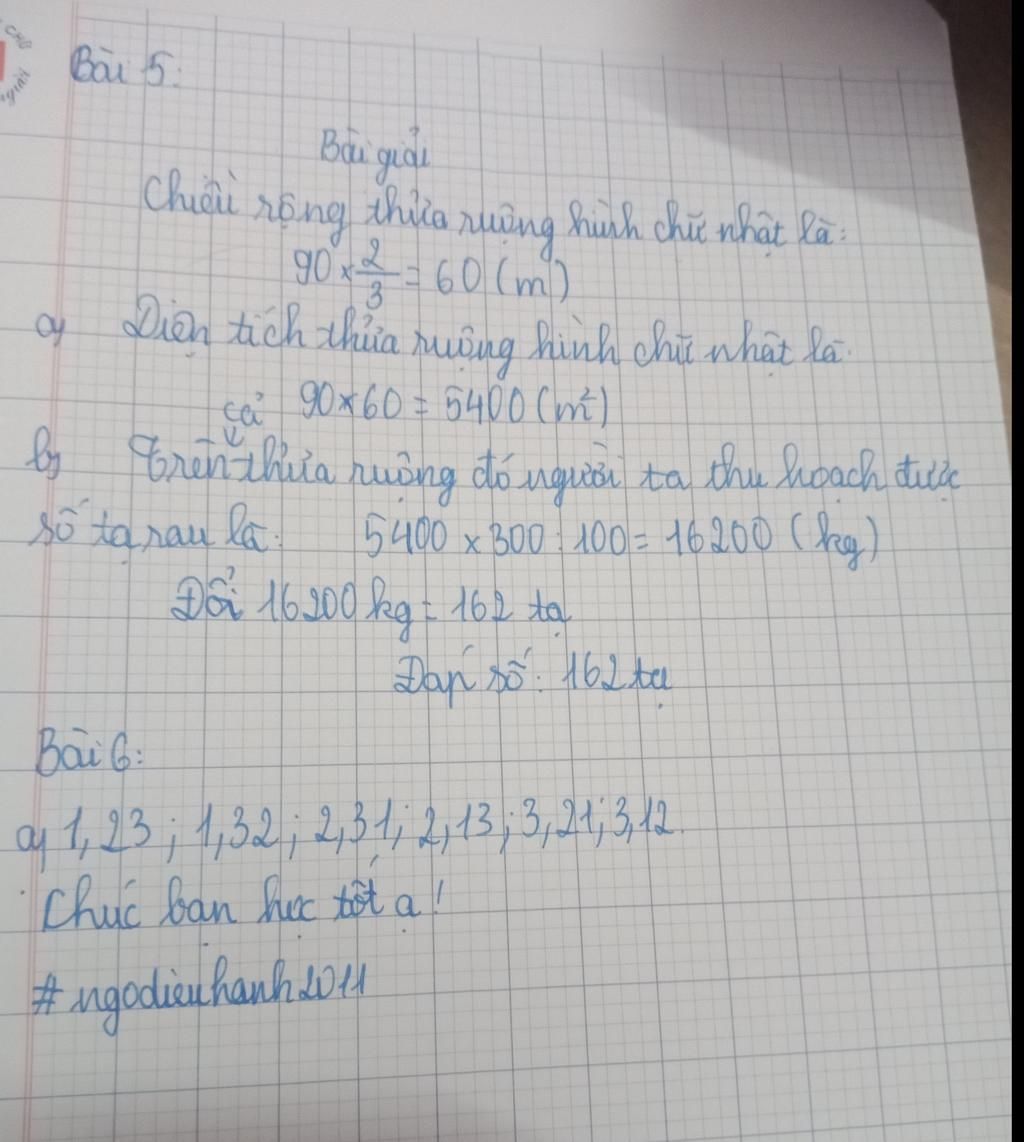 Bài 5:
Bài giải
Chiều rộng thửa ruộng hình chữ nhật là:
90 × 2/3 = 60 (m)
a) Diện tích thửa ruộng hình chữ nhật là:
90 × 60 = 5400 (m²)
cả
b) Trên thửa ruộng đó người ta thu hoạch được
số tạ rau là: 5400 × 300 : 100 = 16200 (kg)
Đổi 16200 kg = 162 tạ
Đáp số: 162 tạ
Bài 6:
a) 1,23 ; 1,32 ; 2,31 ; 2,13 ; 3,21 ; 3,12
Chúc bạn học tốt ạ!
#ngodieuhanh2011